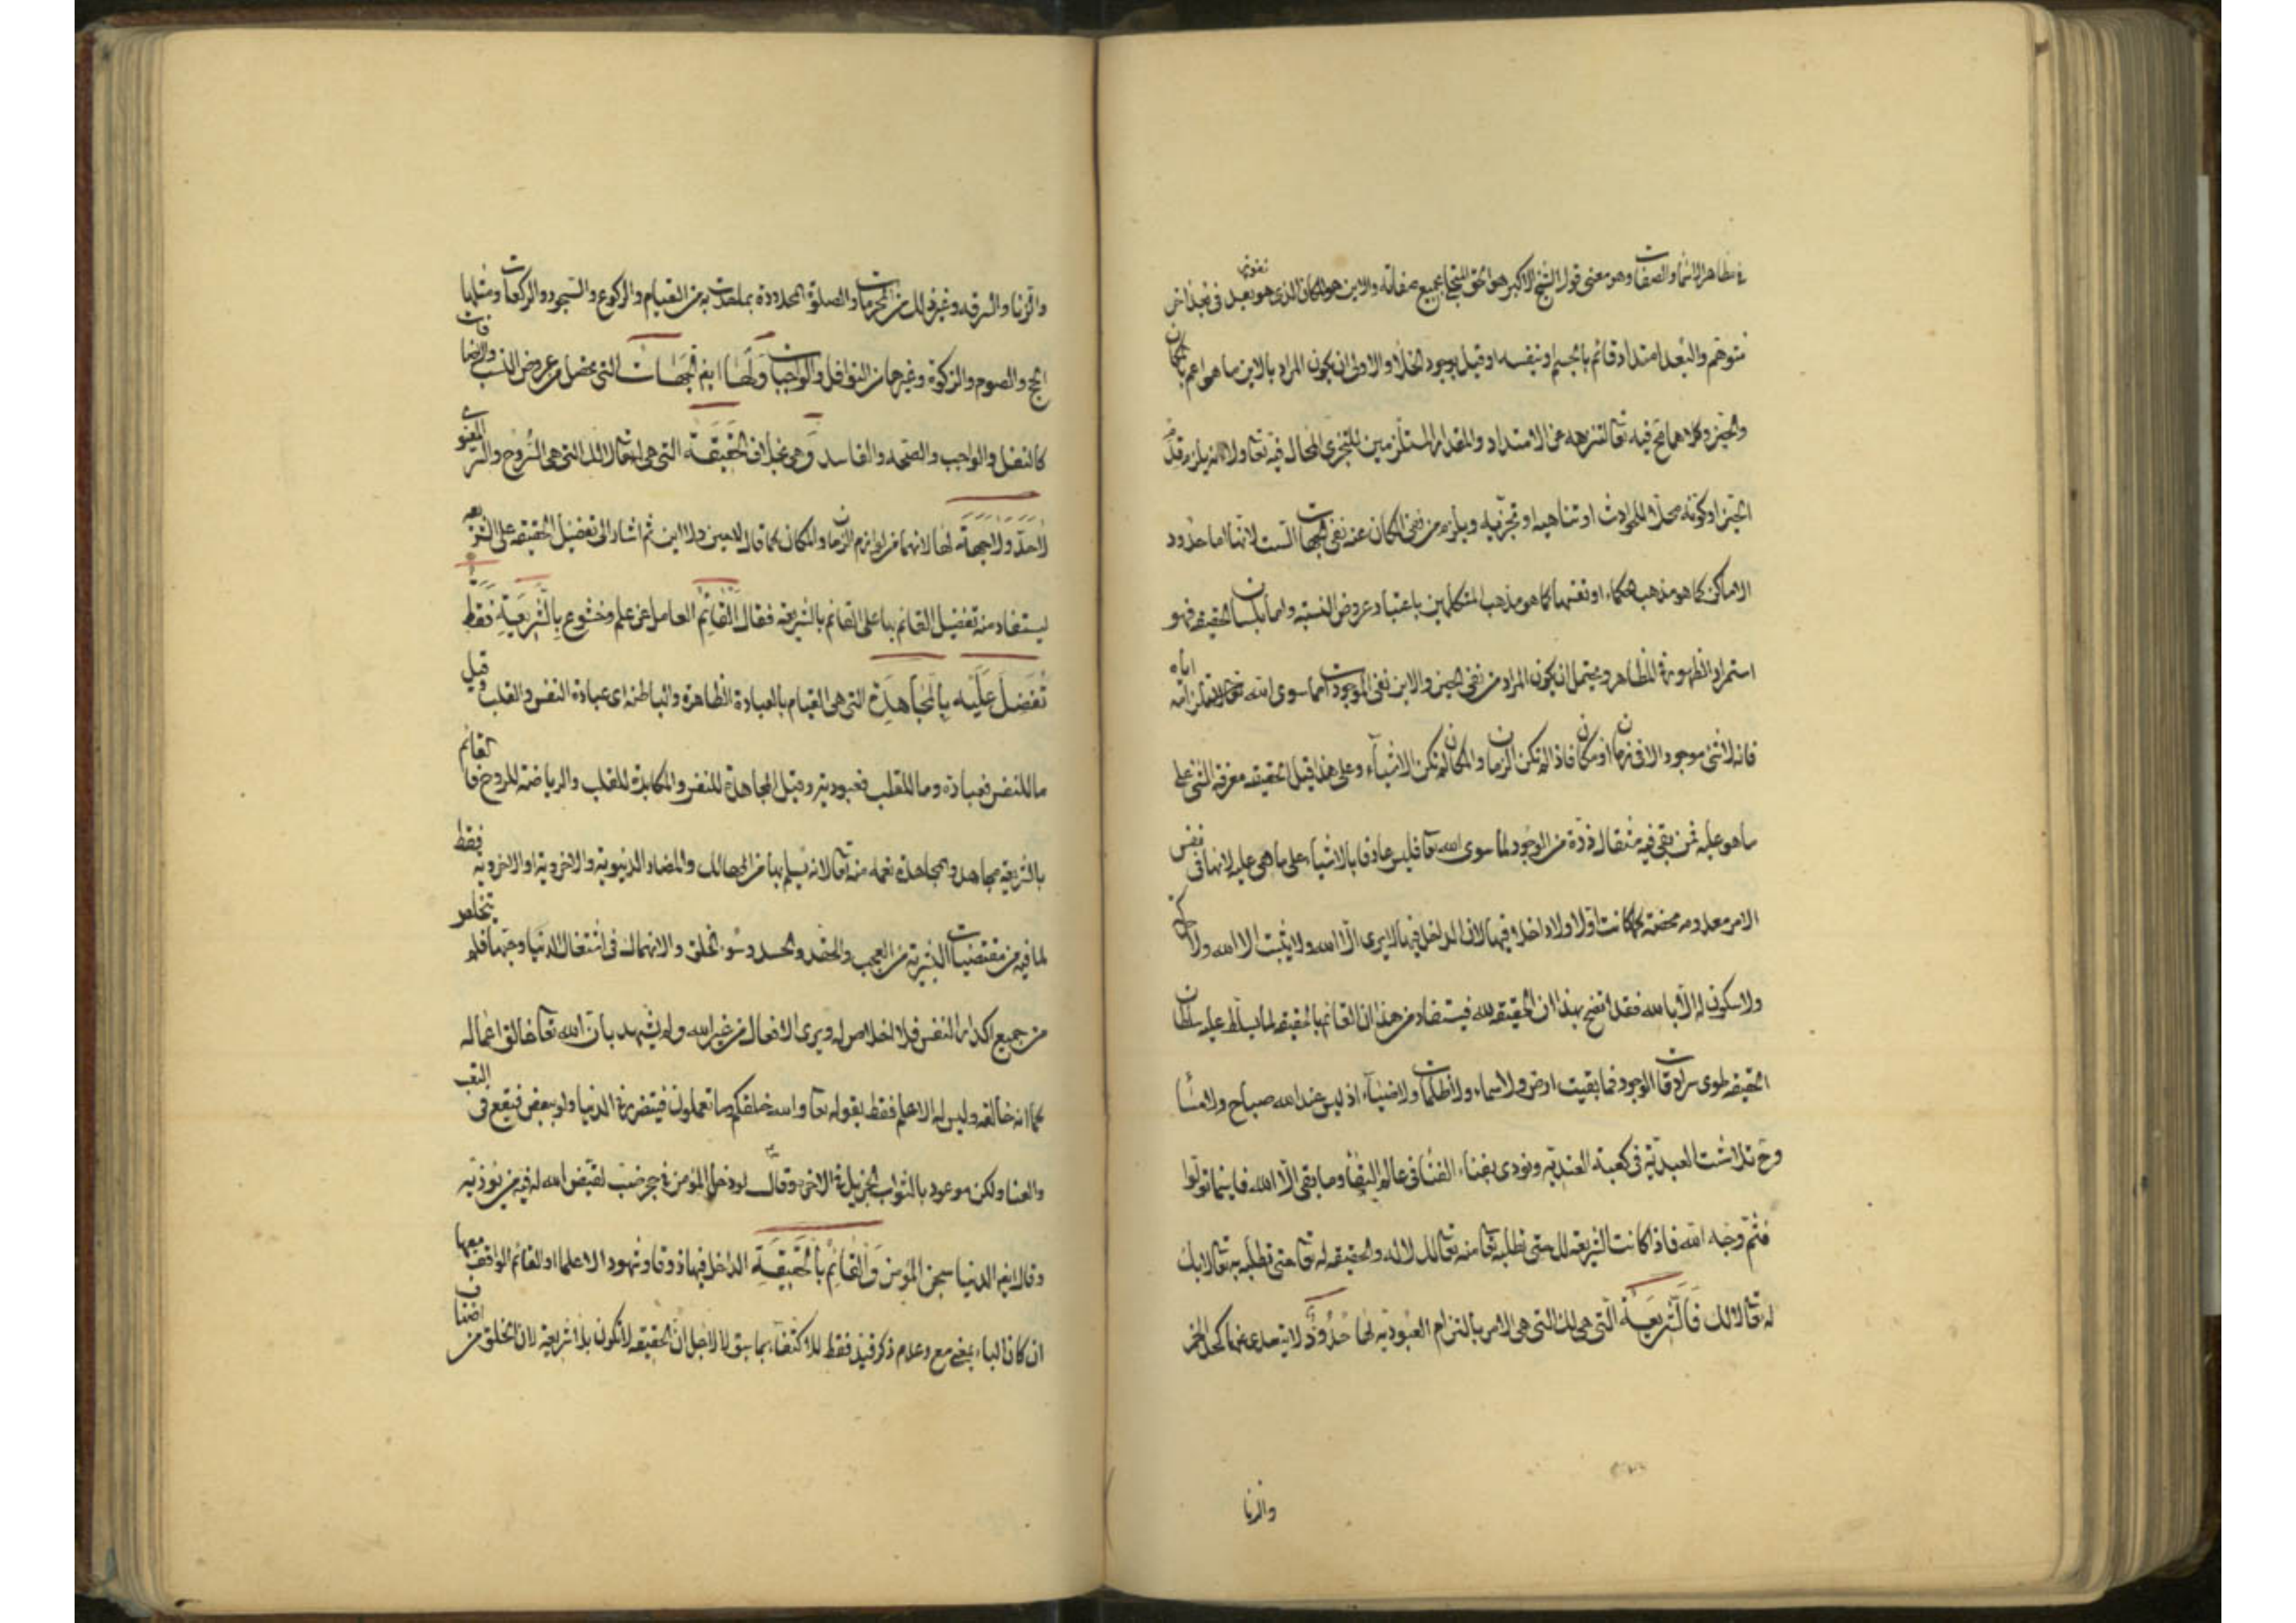 في مظاهر الاسماء والصفات وهو معنى قول الشيخ الاكبر هو الحق المتجلي بجميع صفاته والاين هو المكان الذي هو بعد
متوهم والبعد امتداد قائم بالجسم او بنفسه او قيل بوجود الخلاء والاولى ان يكون المراد بالاين ما هو اعم المكان
والحيز وكلاهما فيه تعا لتنزهه عن الامتداد والمقدار المستلزمين للتجزي المحال فيه تعا ولانه يلزم قدم
الحيز او كونه محلا للحوادث او تناهيه او تجزئيه ويلزم من نفي المكان عنه نفي الجهات الست لانها اما حدود
الاماكن كما هو مذهب الحكماء او نفسها كما هو مذهب المتكلمين باعتبار عروض النسبة واما بلسان الحقيقة فهو
استمرار الظهور في المظاهر ويحتمل ان يكون المراد من نفي الحين والاين نفي الموجودات مما سوى الله
فانه لا شئ موجود الا في زمان او مكان فاذا لم تكن الزمان والمكان لم تكن الاشياء وعلى هذا قيل الحقيقة معرفة الشئ على
ما هو عليه فمن بقي فيه مثقال ذرة من الوجود لما سوى الله تعا فليس عارفا بالاشياء على ما هي عليه لانها في نفس
الامر معدومة محضة كما كانت اولا ولا داخلا فيها لان الداخل فيها لا يرى الا الله ولا يثبت الا الله ولا
ولا سكون له الا بالله فقد اتضح بهذا ان الحقيقة لله فيستفاد من هذا ان القائم بالحقيقة لما تسلط عليه سلطان
الحقيقة طوى سرادقات الوجود فما بقيت ارض ولا سماء ولا ظلمات ولا ضياء اذ ليس عند الله صباح ولا مساء
وح تلاشت العبدية في كعبة العندية ونودي بفناء الفناء في عالم البقاء وما بقي الا الله فاينما تولوا
فثم وجه الله فاذا كانت الشريعة لك حتى تطلبه تعا منه تعا لك لا له والحقيقة له تعا حتى تطلبه به تعا لا بك
له تعا لا لك فَالشَّرِيعَةُ التي هي لك التي هي الامر بالتزام العبودية لها حُدُودٌ لا يتعدى عنها كحد الخمر
والزنا
والزنا والسرقة وغير ذلك من المحرمات والصلوة المحدودة بما حدت به من القيام والركوع والسجود والركعات ومثلها
الحج والصوم والزكوة وغيرها من النوافل والواجبات وَلَهَا ايضا جِهَات التي تحصل من عروض النسب والاضافات
كالنفل والواجب والصحة والفاسد وهي بخلاف الحَقِيقَة التي هي له تعا لا لك التي هي الروح والسر المعنوي
لا حَدَّ ولا جِهَة لها لانهما من لوازم الزمان والمكان كما قال لا حين ولا اين ثم اشار الى تفضيل الحقيقة على الشريعة
ليستفاد منه تفضيل القائم بها على القائم بالشريعة فقال القَائِم العامل عن علم وخشوع بِالشَّرِيعَةِ فَقَط
تَفَضَّلَ عَلَيْهِ بِالْمُجَاهَدَةِ التي هي القيام بالعبادة الظاهرة والباطنة اي عبادة النفس والقلب وقيل
ما للنفس فعبادة وما للقلب فعبودية وقيل المجاهدة للنفس والمكابدة للقلب والرياضة للروح فالقائم
بالشريعة مجاهد والمجاهدة نعمة منه تعا لانه يسلم بها من المهالك والمضار الدنيوية والاخروية او الاخروية فقط
لما فيه من مقتضيات البشرية من العجب والحقد والحسد وسوء الخلق والانهماك في اشتغال الدنيا وحبها فلم يتخلص
من جميع اكدار النفس فلا اخلاص له ويرى الافعال من غير الله ولم يشهد بان الله تعا خالق اعماله
كما انه خالقه وليس له الا علم فقط بقوله تعا والله خلقكم وما تعملون فيتضرر في الدنيا ولو ببعض فيقع في التعب
والعنا ولكن موعود بالثواب الجزيل في الاخرة وقال لو دخل المؤمن في جحر ضب لقيض الله له فيه من يؤذيه
وقال ايضا الدنيا سجن المؤمن وَالْقَائِمُ بِالْحَقِيقَةِ الداخل فيها ذوقا وشهودا لا علما او القائم الواقف معها
ان كان الباء بمعنى مع وعدم ذكر قيد فقط للاكتفاء بما سبق لا لاجل ان الحقيقة لا تكون بلا شريعة لان الخلق من